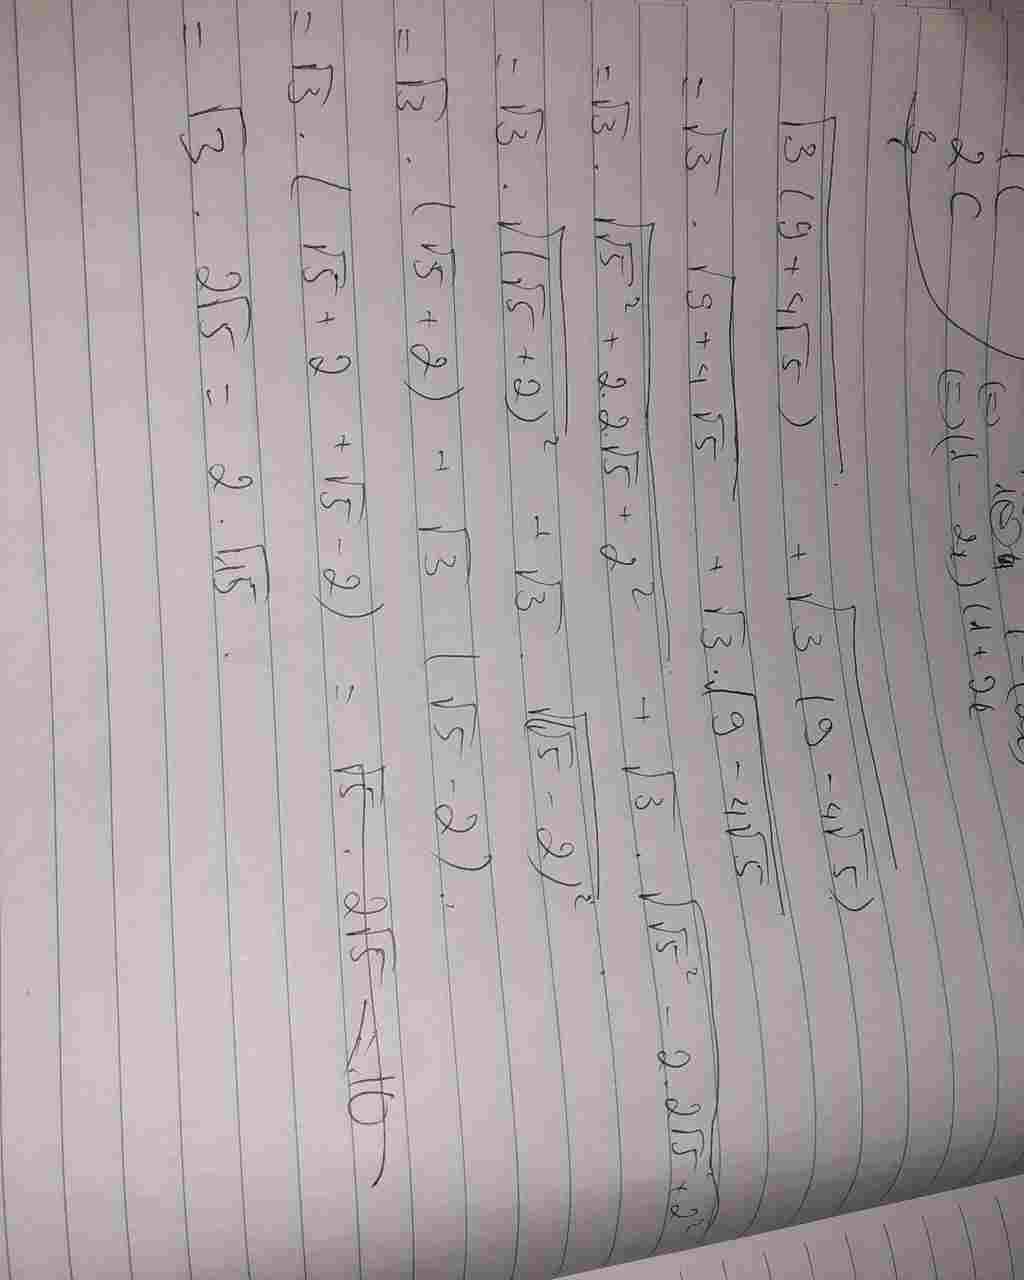 1C
2C
(=) (1 - 2x) (1 + 2x
√3(9+4√5) + √3(9-4√5)
= √3 . √9+4√5 + √3.√9-4√5
= √3 . √√5² + 2.2.√5 + 2² + √3 . √√5² - 2.2√5+2²
= √3 . √(√5+2)² + √3 . √(√5-2)²
= √3 . (√5+2) + √3 (√5-2)
= √3 . (√5+2 +√5-2) =
= √3 . 2√5 = 2.√15.